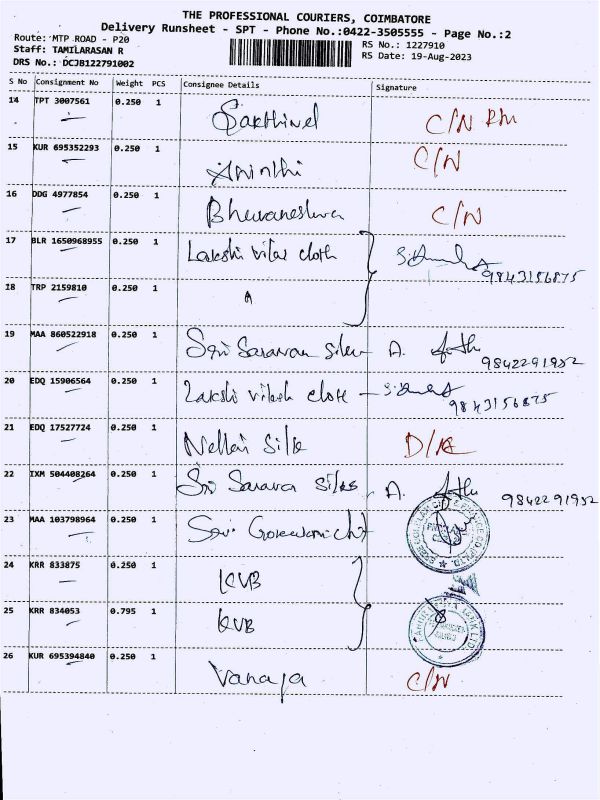 THE PROFESSIONAL COURIERS, COIMBATORE
Delivery Runsheet - SPT - Phone No.:0422-3505555 - Page No.:2
Route: MTP ROAD - P20
RS No.: 1227910
Staff: TAMILARASAN R
RS Date: 19-Aug-2023
DRS No.: DCJB122791002
S No Consignment No Weight PCS Consignee Details Signature
14 TPT 3007561 0.250 1 Sakthivel C/N RM
15 KUR 695352293 0.250 1 C/N
16 DDG 4977854 0.250 1 Bhuvaneshwa C/N
17 BLR 1650968955 0.250 1 Lakshi vilas cloth 9843156875
18 TRP 2159810 0.250 1
19 MAA 860522918 0.250 1 Sri Saravan silk A. 9842291952
20 EDQ 15906564 0.250 1 Lakshi vilash cloth 9843156875
21 EDQ 17527724 0.250 1 Nellai Silk D/A
22 IXM 504408264 0.250 1 Sri Sarava Silks A. 9842291952
23 MAA 103798964 0.250 1 Sri
24 KRR 833875 0.250 1 KVB
25 KRR 834053 0.795 1 KVB
26 KUR 695394840 0.250 1 Vanaja C/N